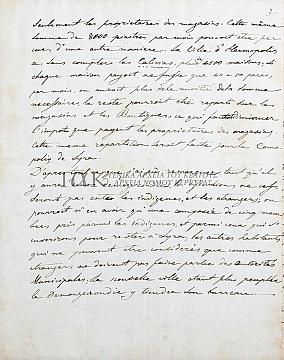 2
seulement les propriétaires des magasins. Cette même
somme de 8000 piastres par mois pouvait être per-
çue d'une autre manière. La Ville d'Hermopolis
a sans compter les maisons. Si
chaque maison payait ne fusse que 20 ou 30 paras
par mois, on aurait plus de la moitié de la somme
nécessaire, le reste pourrait être reparti sur les
magasins et les Boutiques, ce qui
l'impôt que payent les propriétaires des magasins.
Cette même répartition devrait faite pour le Como-
polis de Syra.
D'après tel qu'il
y aura
ΓΕΝΙΚΑ ΑΡΧΕΙΑ ΤΟΥ ΚΡΑΤΟΥΣ
ΑΡΧΕΙΑ ΝΟΜΟΥ ΚΥΚΛΑΔΩΝ
seront pas entre les indigènes, et les étrangers, on
pourrait n'en avoir qu'une composée de cinq mem-
bres pris parmi les indigènes, et parmi ceux qui s'in-
scrivirent pour rester à Syra, les autres habitants
qui ne peuvent être considérés que comme
étrangers ne doivent pas faire partie des Autorités
Municipales. La nouvelle ville étant plus peuplée
la Démogérondie y tiendra son bureau.